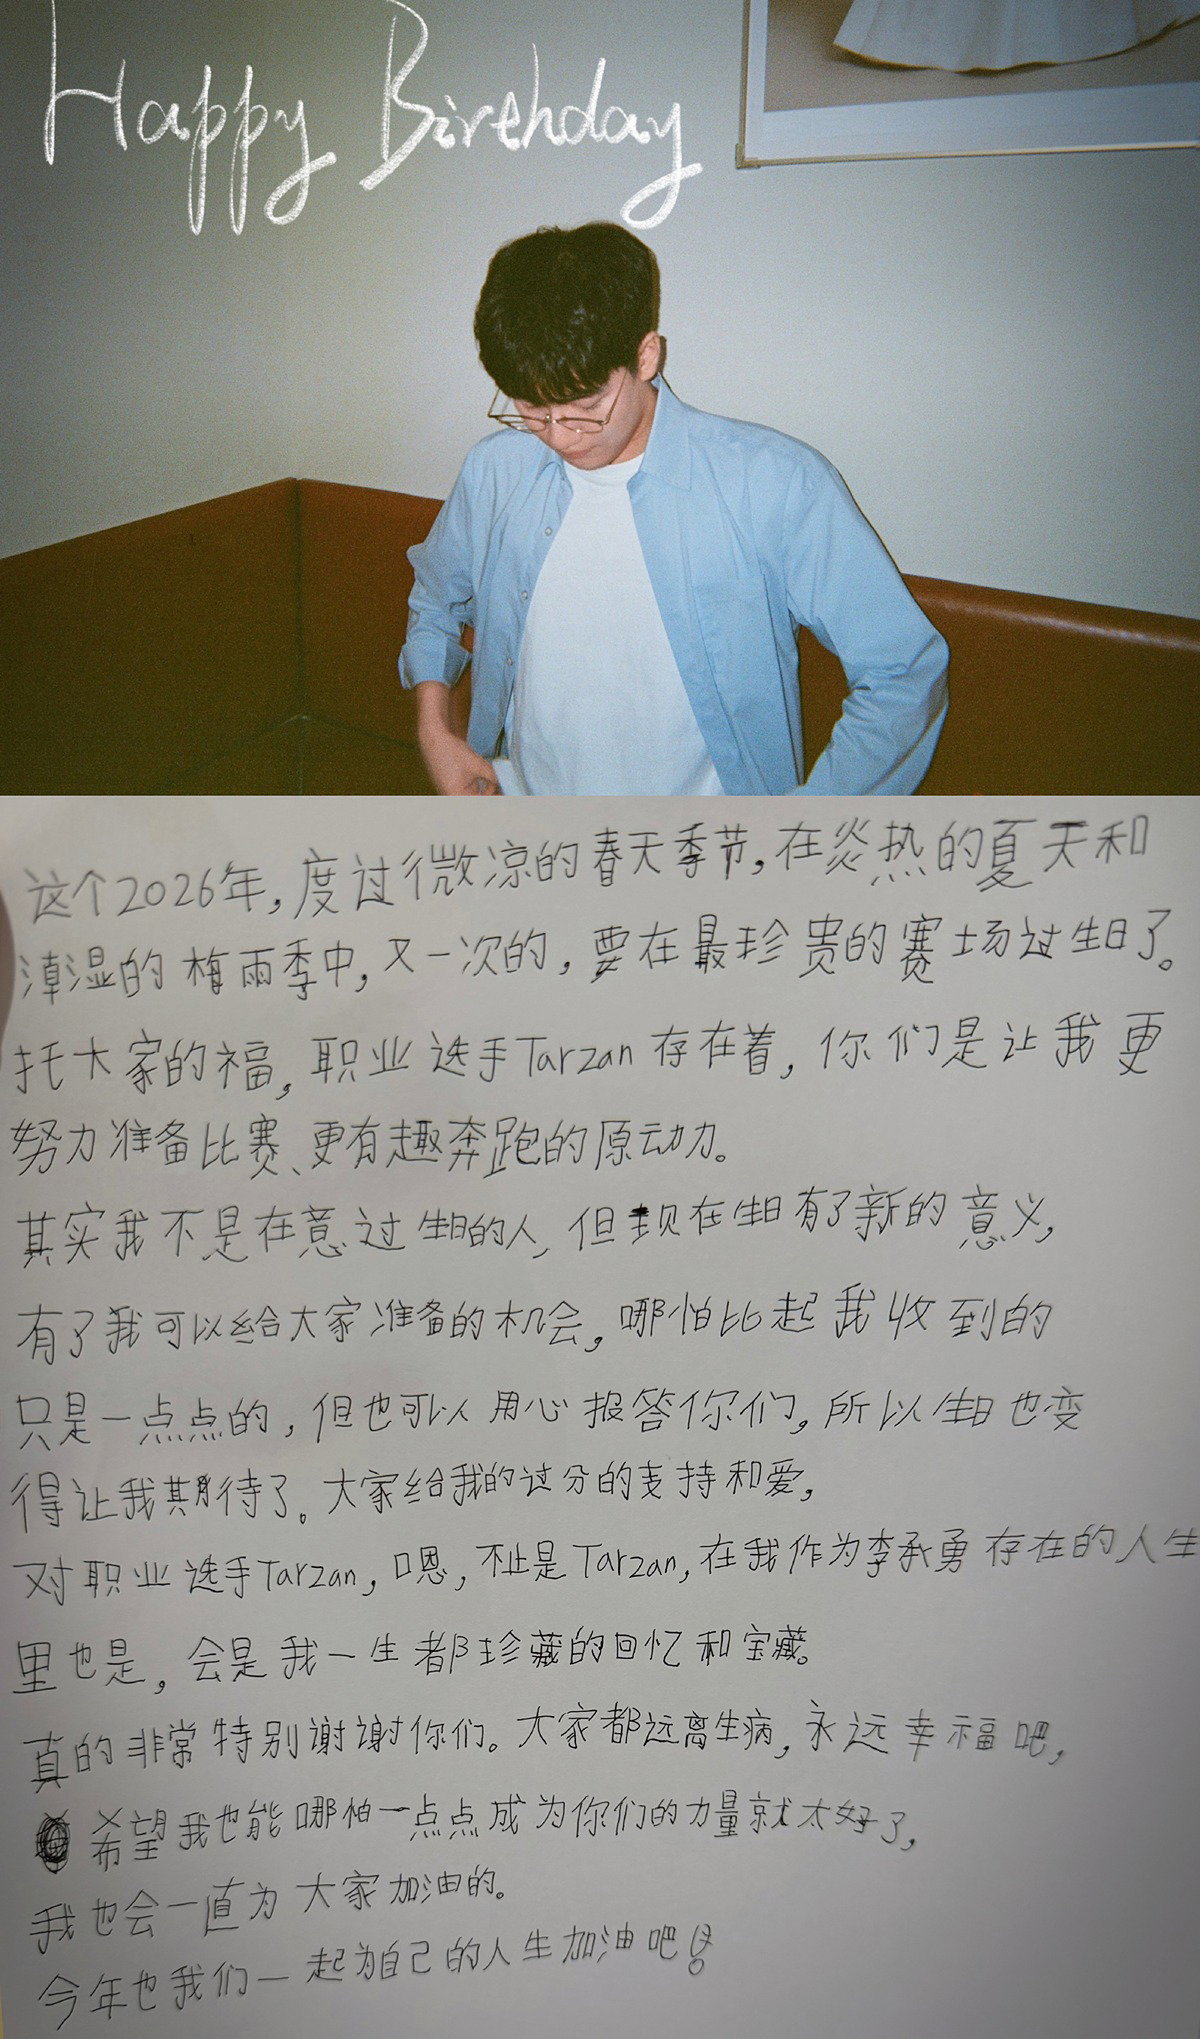 Happy Birthday
这个2026年,度过微凉的春天季节,在炎热的夏天和
潮湿的梅雨季中,又一次的,要在最珍贵的赛场过生日了。
托大家的福,职业选手Tarzan存在着,你们是让我更
努力准备比赛、更有趣奔跑的原动力。
其实我不是在意过生日的人,但现在生日有了新的意义,
有了我可以给大家准备的机会,哪怕比起我收到的
只是一点点的,但也可以用心报答你们,所以生日也变
得让我期待了。大家给我的过分的支持和爱,
对职业选手Tarzan,嗯,不止是Tarzan,在我作为李承勇存在的人生
里也是,会是我一生都珍藏的回忆和宝藏。
真的非常特别谢谢你们。大家都远离生病,永远幸福吧,
希望我也能哪怕一点点成为你们的力量就太好了,
我也会一直为大家加油的。
今年也我们一起为自己的人生加油吧!